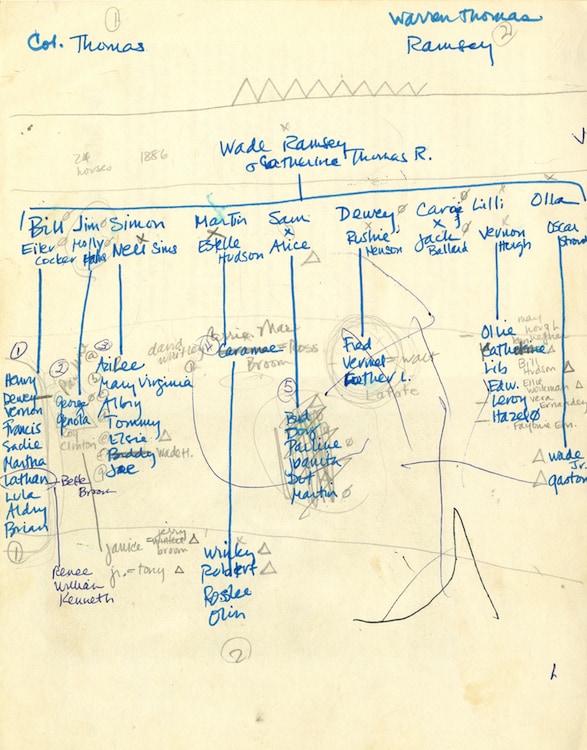 1
Col. Thomas
Warren Thomas
2
Ramsey
24 horses
1886
Wade Ramsey
& Catherine Thomas R.
Bill
Eiler
Cocker
Jim
Molly
Simon
Nell Sims
Martin
Estelle
Hudson
Sam
Alice
Dewey
Rushie
Henson
Jack
Ballard
Lilli
Vernon
Hough
Olla
Oscar
1
Henry
Dewey
Vernon
Francis
Sadie
Martha
Lathan
Lula
Aldry
Brian
1
2
George
Genola
Clinton
Bette
Broom
Renee
William
Kenneth
3
Ailee
Mary Virginia
Alby
Tommy
Elsie
Buddy
Wade H.
Joe
Janice =
broom
jr. = tony
Mae
Caramae = Ross
Broom
Wriky
Robert
Roslee
Olin
2
5
Bud
Doug
Pauline
Juanita
Dot
Martin
Fred
Vernel = Walt
Esther L.
Ollie
Catherine
Lib
Edw.
Leroy
Hazel
may
hough
Bill
Hudson
vera
Wade
Jr.
Gaston